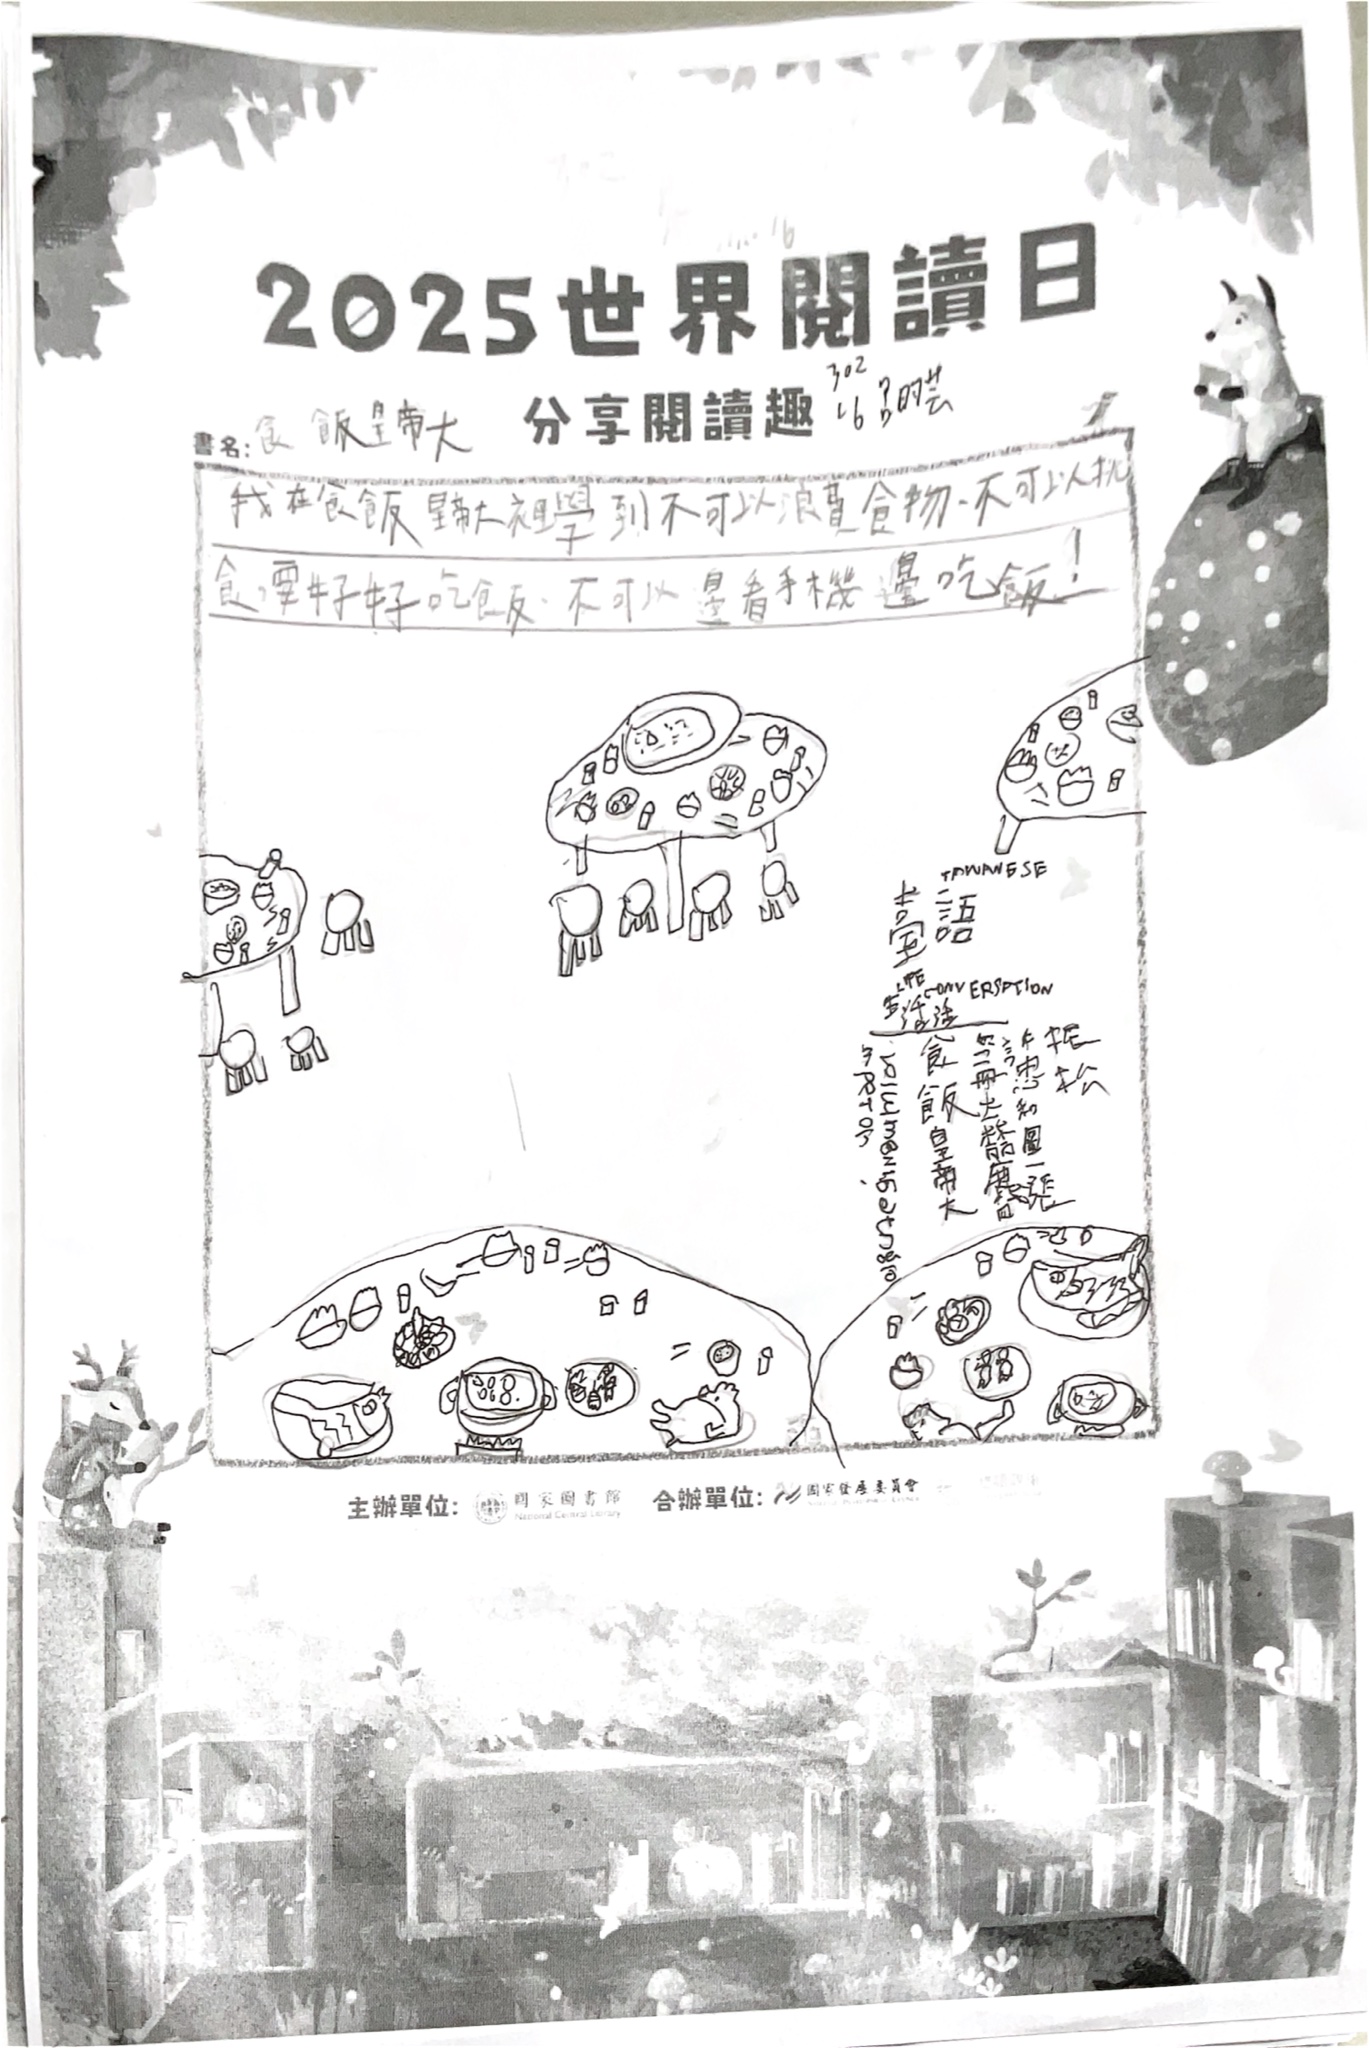 2025世界閱讀日
分享閱讀趣
302
16 呂昀芸
書名:食飯皇帝大
我在食飯皇帝大裡學到不可以浪費食物、不可以挑
食、要好好吃飯、不可以邊看手機邊吃飯!
TAWANESE
臺語
LIFE CONVERSATION
生活
食飯皇帝大
主辦單位: 國家圖書館
National Central Library
合辦單位: 國家發展委員會